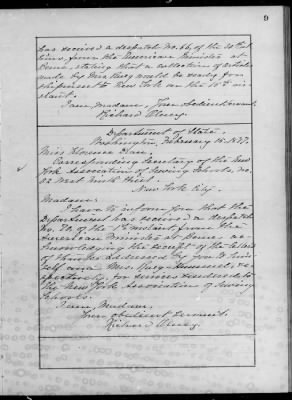 9
has received a despatch No. 66, of the 30th
from the American Minister at
stating that a collection of articles
made by Mrs. King would be ready for
shipment to New York on the 10th in-
stant.
I am, Madam, Your obedient servant,
Richard Olney.
Department of State,
Washington, February 15, 1897.
Miss Florence
Corresponding Secretary of the New
York Association of Sewing Schools, No.
West Ninth Street,
New York City.
Madam:
I have to inform you that the
Department has received a despatch
No. 70, of the 1st instant from the
American Minister at
acknowledging the receipt of the letters
of thanks addressed by you to him-
self and Mrs. King
for services rendered to
the New York Association of Sewing
Schools.
I am, Madam,
Your obedient servant,
Richard Olney.